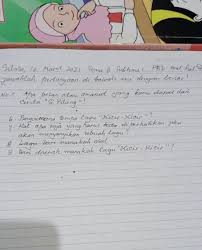 Selasa, 16 Maret 2021 Tema 8 Subtema
jawablah pertanyaan di bawah ini dengan benar!
No. 5 Apa pesan atau amanat yang kamu dapat dari
Cerita "Si Pitung"!
6. Bagaimana tempo lagu Kicir-Kicir!
7. Hal apa saja yang harus kita perhatikan jika
akan menyanyikan sebuah lagu!
8. lagu
9. Dari daerah manakah lagu "Kicir-Kicir"!